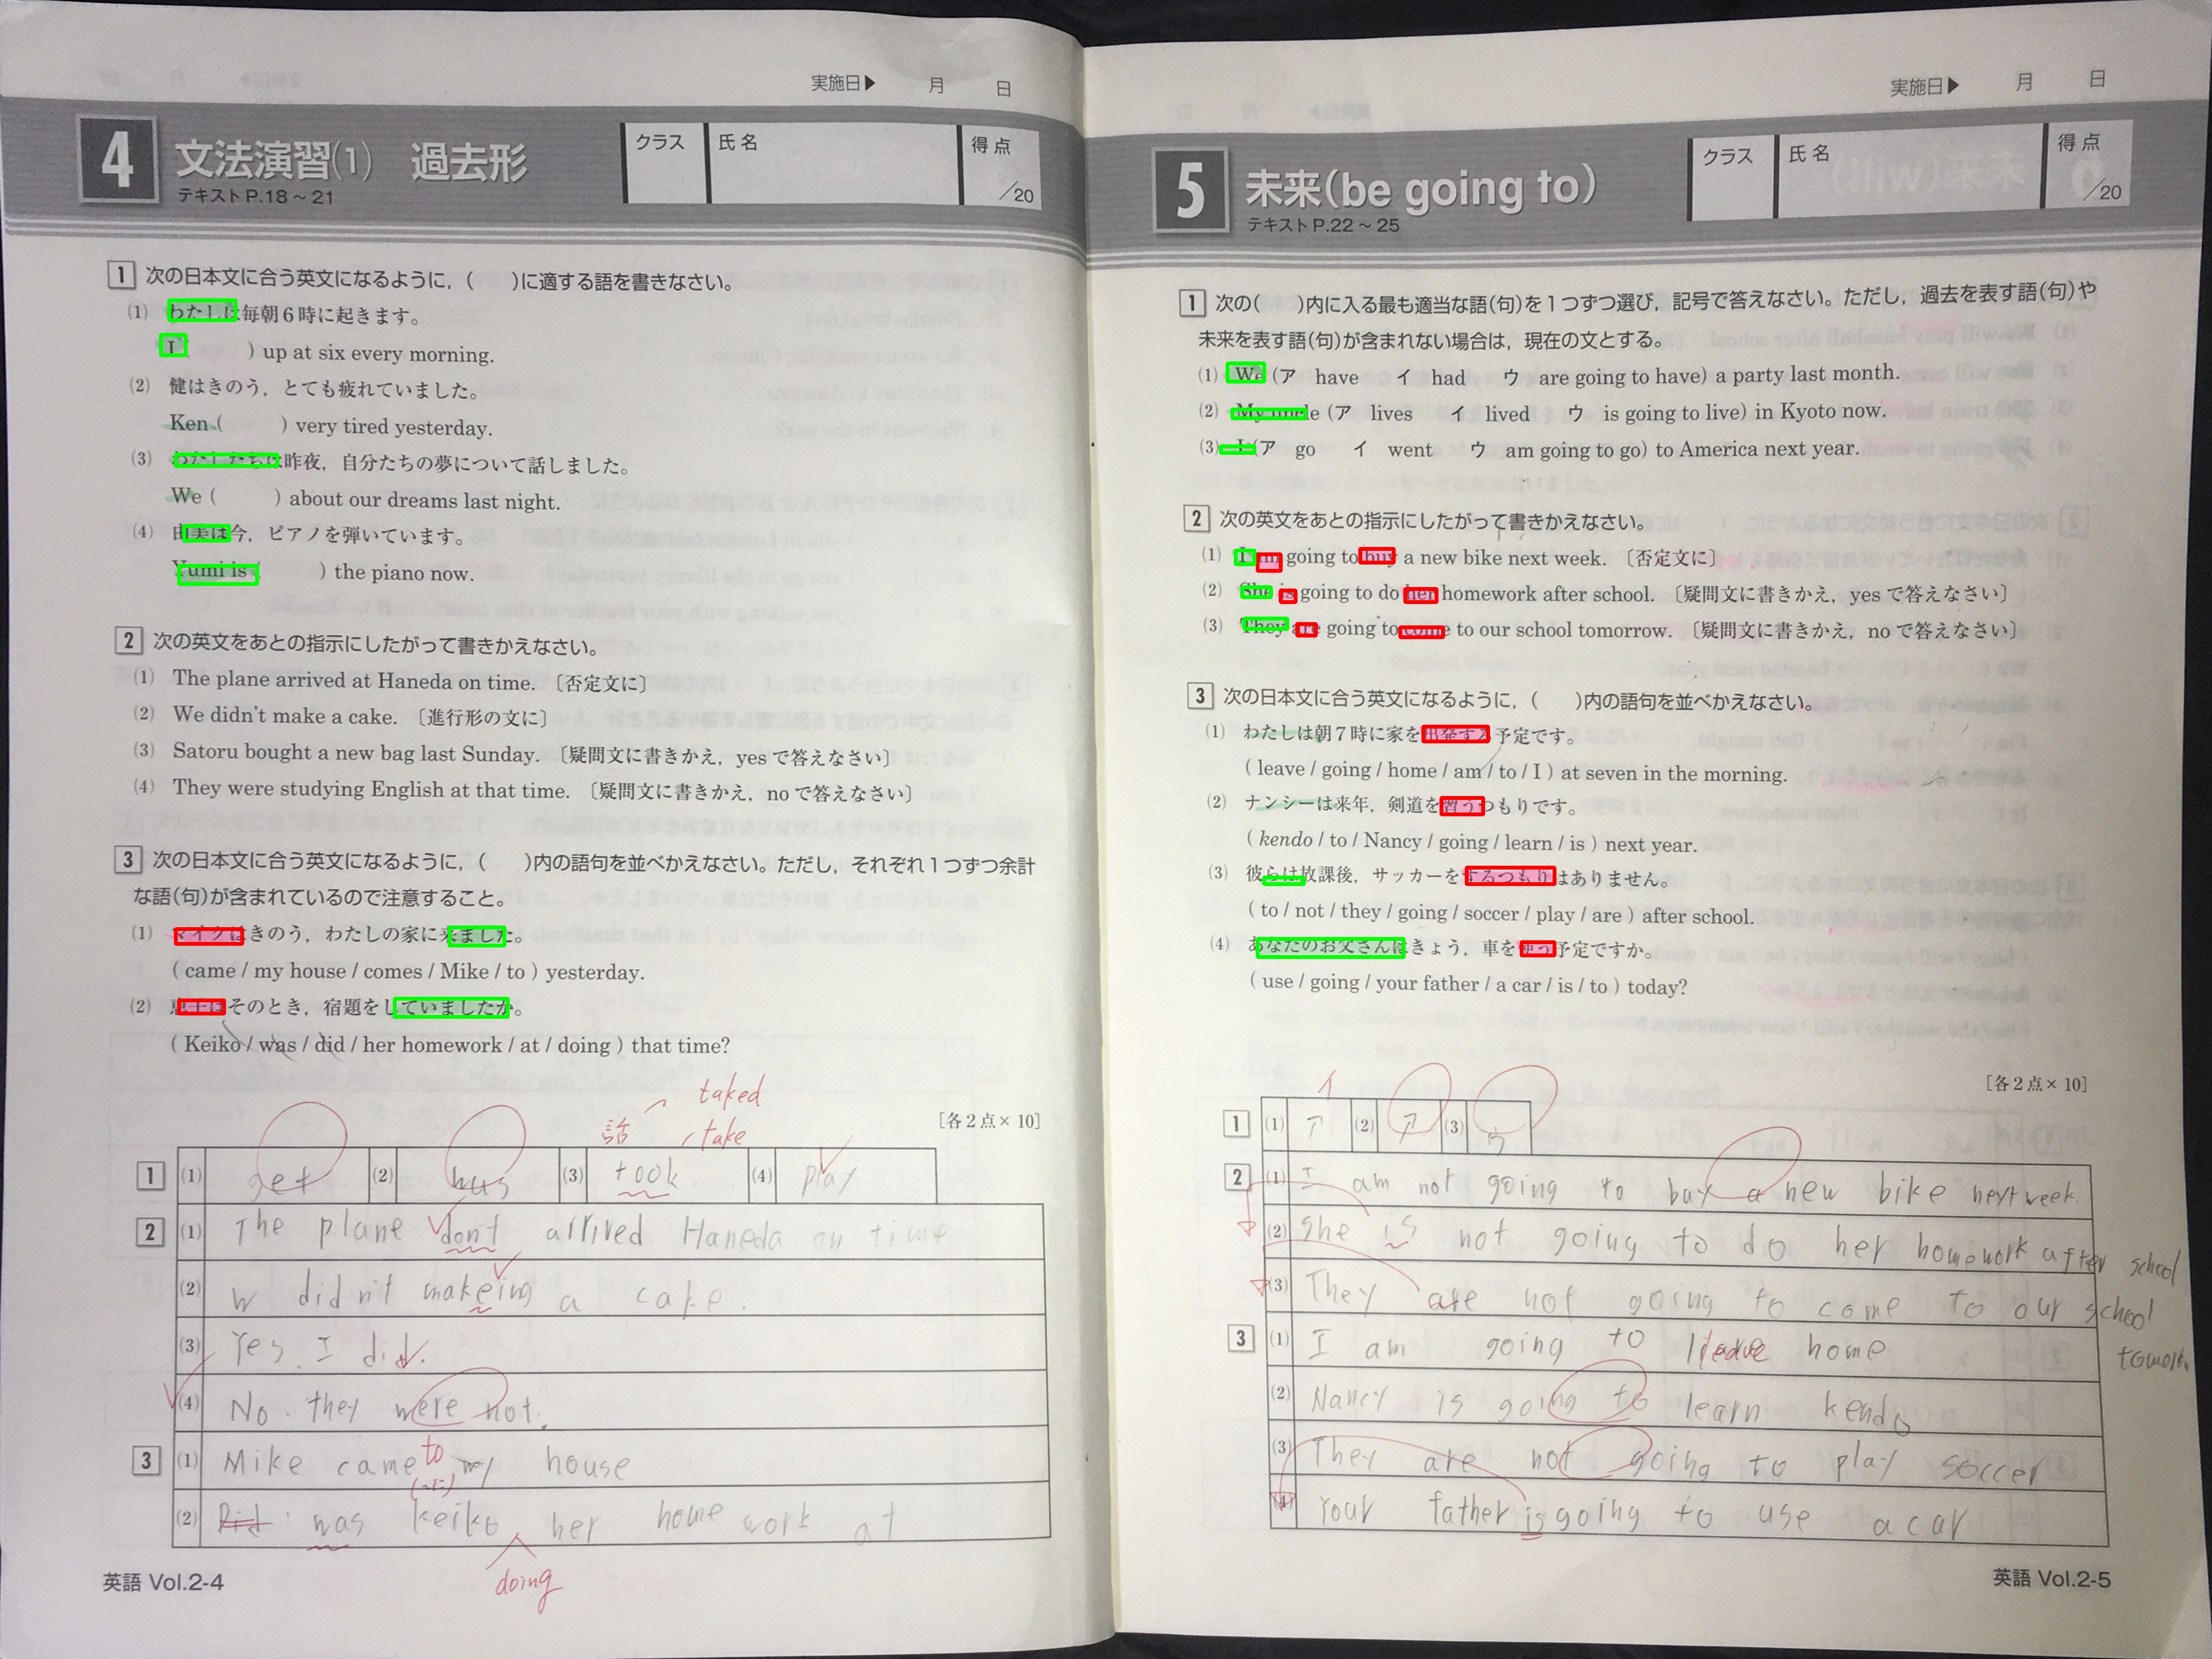 実施日▶ 月 日
4 文法演習(1) 過去形
テキストP.18～21
クラス 氏名 得点 /20
1 次の日本文に合う英文になるように,( )に適する語を書きなさい。
(1) わたしは毎朝6時に起きます。
I ) up at six every morning.
(2) 健はきのう,とても疲れていました。
Ken ( ) very tired yesterday.
(3) わたしたちは昨夜,自分たちの夢について話しました。
We ( ) about our dreams last night.
(4) 由美は今,ピアノを弾いています。
Yumi is ( ) the piano now.
2 次の英文をあとの指示にしたがって書きかえなさい。
(1) The plane arrived at Haneda on time. 〔否定文に〕
(2) We didn't make a cake. 〔進行形の文に〕
(3) Satoru bought a new bag last Sunday. 〔疑問文に書きかえ,yesで答えなさい〕
(4) They were studying English at that time. 〔疑問文に書きかえ,noで答えなさい〕
3 次の日本文に合う英文になるように,( )内の語句を並べかえなさい。ただし,それぞれ1つずつ余計
な語(句)が含まれているので注意すること。
(1) マイクはきのう,わたしの家に来ました。
( came / my house / comes / Mike / to ) yesterday.
(2) 恵子はそのとき,宿題をしていましたか。
( Keiko / was / did / her homework / at / doing ) that time?
taked
話 take
[各2点×10]
1 (1) get (2) was (3) took (4) play
2 (1) The plane don't arrived Haneda on time
(2) W didn't makeing a cake.
(3) Yes. I did.
(4) No. they were not.
3 (1) Mike came to my house
(~に)
(2) Did was keiko her home work at
doing
英語 Vol.2-4
実施日▶ 月 日
5 未来(be going to)
テキストP.22～25
クラス 氏名 得点 /20
1 次の( )内に入る最も適当な語(句)を1つずつ選び,記号で答えなさい。ただし,過去を表す語(句)や
未来を表す語(句)が含まれない場合は,現在の文とする。
(1) We (ア have イ had ウ are going to have) a party last month.
(2) My uncle (ア lives イ lived ウ is going to live) in Kyoto now.
(3) I (ア go イ went ウ am going to go) to America next year.
2 次の英文をあとの指示にしたがって書きかえなさい。
(1) I am going to buy a new bike next week. 〔否定文に〕
(2) She is going to do her homework after school. 〔疑問文に書きかえ,yesで答えなさい〕
(3) They are going to come to our school tomorrow. 〔疑問文に書きかえ,noで答えなさい〕
3 次の日本文に合う英文になるように,( )内の語句を並べかえなさい。
(1) わたしは朝7時に家を出発する予定です。
( leave / going / home / am / to / I ) at seven in the morning.
(2) ナンシーは来年,剣道を習うつもりです。
( kendo / to / Nancy / going / learn / is ) next year.
(3) 彼らは放課後,サッカーをするつもりはありません。
( to / not / they / going / soccer / play / are ) after school.
(4) あなたのお父さんはきょう,車を使う予定ですか。
( use / going / your father / a car / is / to ) today?
[各2点×10]
イ
1 (1) ア (2) ア (3) ウ
2 (1) I am not going to buy a new bike next week.
(2) She is not going to do her homework after school
(3) They are not going to come to our school
3 (1) I am going to leave home
(2) Nancy is going to learn kendo
(3) They are not going to play soccer
(4) Your father is going to use a car
英語 Vol.2-5